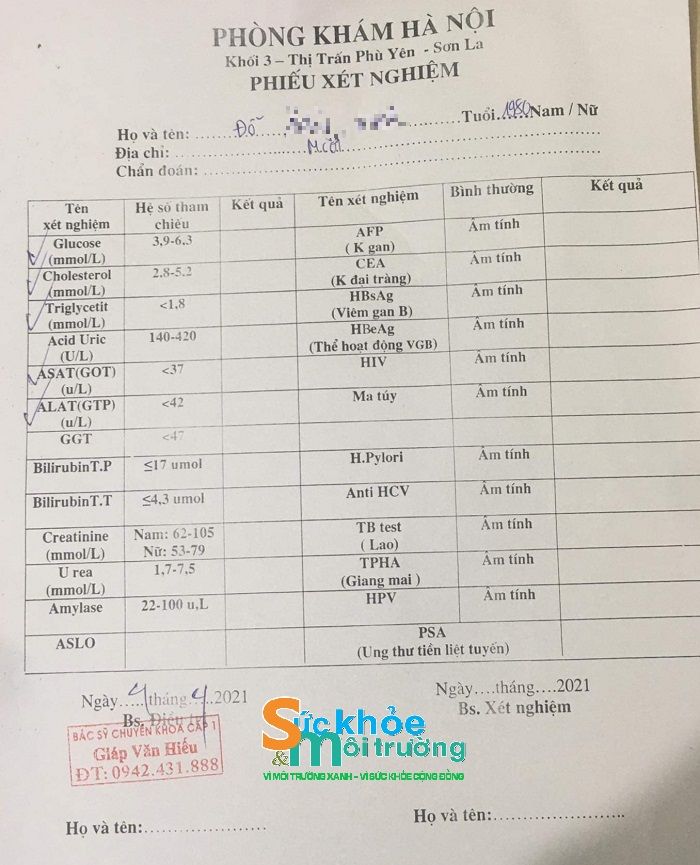 PHÒNG KHÁM HÀ NỘI
Khối 3 – Thị Trấn Phù Yên - Sơn La
PHIẾU XÉT NGHIỆM
Họ và tên: ........Đỗ ........Tuổi.1980Nam / Nữ
Địa chỉ: ........
Chẩn đoán: ........
Tên xét nghiệm Hệ số tham chiếu Kết quả Tên xét nghiệm Bình thường Kết quả
Glucose (mmol/L) 3,9-6,3 AFP ( K gan) Âm tính
Cholesterol (mmol/L) 2,8-5.2 CEA (K đại tràng) Âm tính
Triglycetit (mmol/L) <1,8 HBsAg (Viêm gan B) Âm tính
Acid Uric (U/L) 140-420 HBeAg (Thể hoạt động VGB) Âm tính
ASAT(GOT) (u/L) <37 HIV Âm tính
ALAT(GTP) (u/L) <42 Ma túy Âm tính
GGT <47
BilirubinT.P ≤17 umol H.Pylori Âm tính
BilirubinT.T ≤4,3 umol Anti HCV Âm tính
Creatinine (mmol/L) Nam: 62-105 Nữ: 53-79 TB test ( Lao) Âm tính
U rea (mmol/L) 1,7-7,5 TPHA (Giang mai ) Âm tính
Amylase 22-100 u,L HPV Âm tính
ASLO PSA (Ung thư tiền liệt tuyến)
Ngày..4..tháng.4..2021
Bs. Điều trị
BÁC SỸ CHUYÊN KHOA CẤP 1
Giáp Văn Hiếu
ĐT: 0942.431.888
Ngày....tháng....2021
Bs. Xét nghiệm
Sức khỏe
& môi trường
VÌ MÔI TRƯỜNG XANH – VÌ SỨC KHỎE CỘNG ĐỒNG
Họ và tên:....................
Họ và tên:.....................